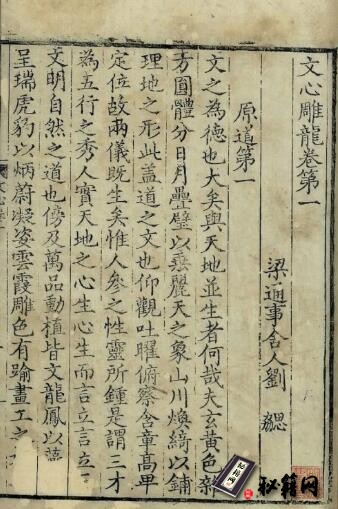 文心雕龍卷第一
梁通事舍人劉勰
原道第一
文之為德也大矣與天地並生者何哉夫玄黃色雜
方圓體分日月疊璧以垂麗天之象山川煥綺以鋪
理地之形此盖道之文也仰觀吐曜俯察含章高卑
定位故兩儀既生矣惟人參之性靈所鍾是謂三才
為五行之秀人實天地之心生心生而言立言立
文明自然之道也傍及萬品動植皆文龍鳳以藻
呈瑞虎豹以炳蔚凝姿雲霞雕色有踰畫工之
秘籍网
秘籍网